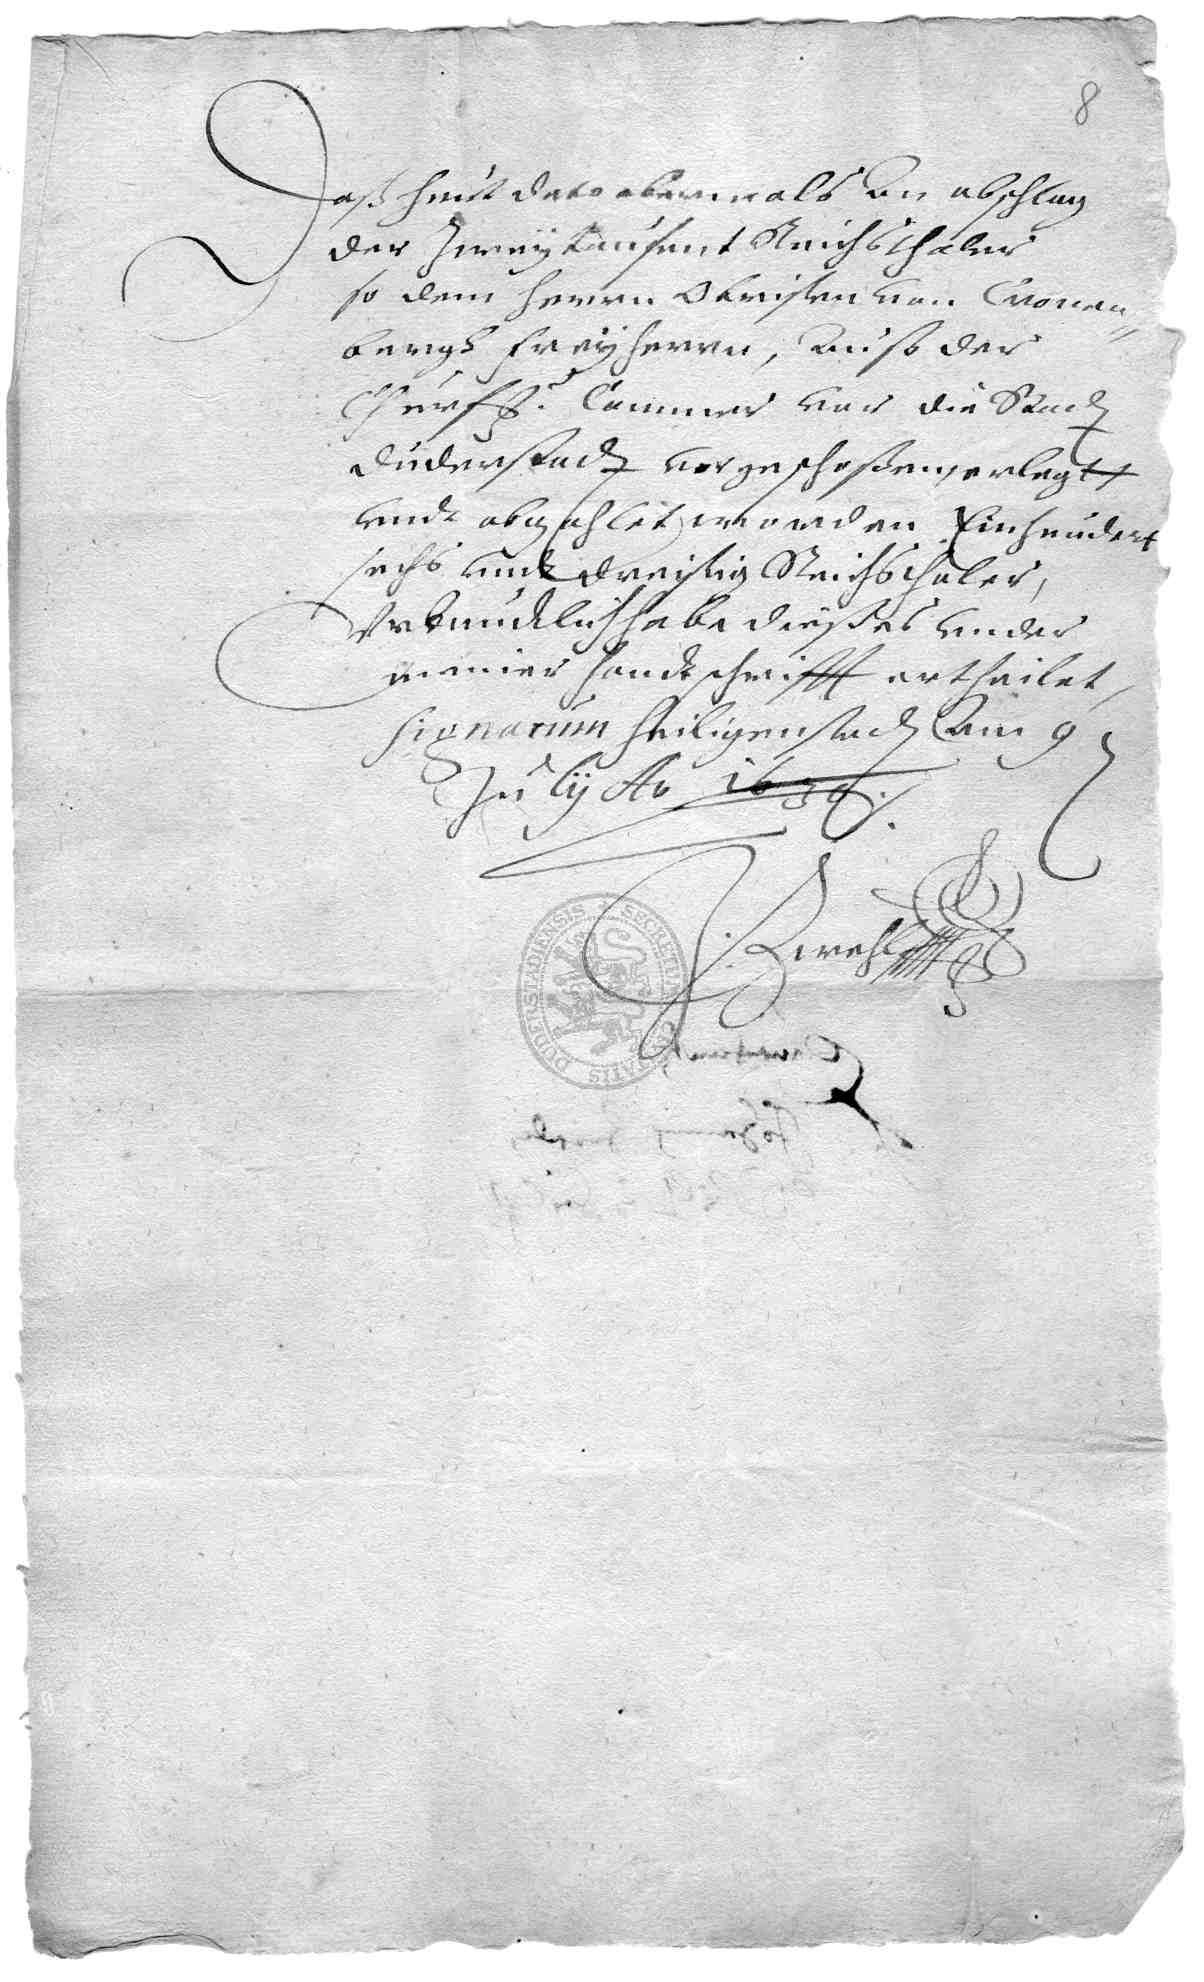 8
Daß heut dato abermals An abschlag
der Zweytausent Reichsthaler
so dem Herrn Obristen von Cronen„
bergk Freyherrn, Auß der
Churfl. Cammer vor die Stadt
Duderstadt vorgeschoßen, erlegt
undt abgezahlet worden Einhundert
sechs undt dreißig Reichsthaler,
Urkundtlich habe dießes under
meiner handtschrifft ertheilet,
Signatum Heiligenstadt Am 9
Julij Ao
SECRETUM CIVITATIS DUDERSTADIENSIS